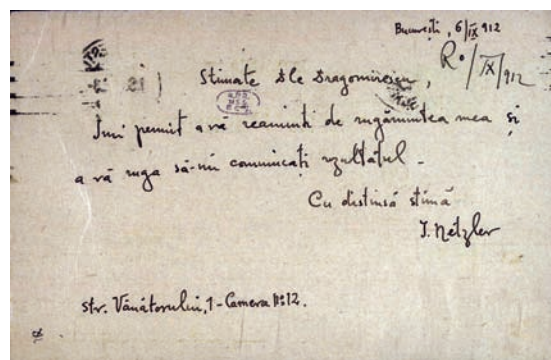 București, 6/IX 912
R° /IX/912
Stimate Dle Dragomirescu,
Îmi permit a vă reaminti de rugămintea mea și
a vă ruga să-mi comunicați rezultatul.
Cu distinsă stimă
I. Netzler
str. Vânătorului, 1 - Camera No 12.